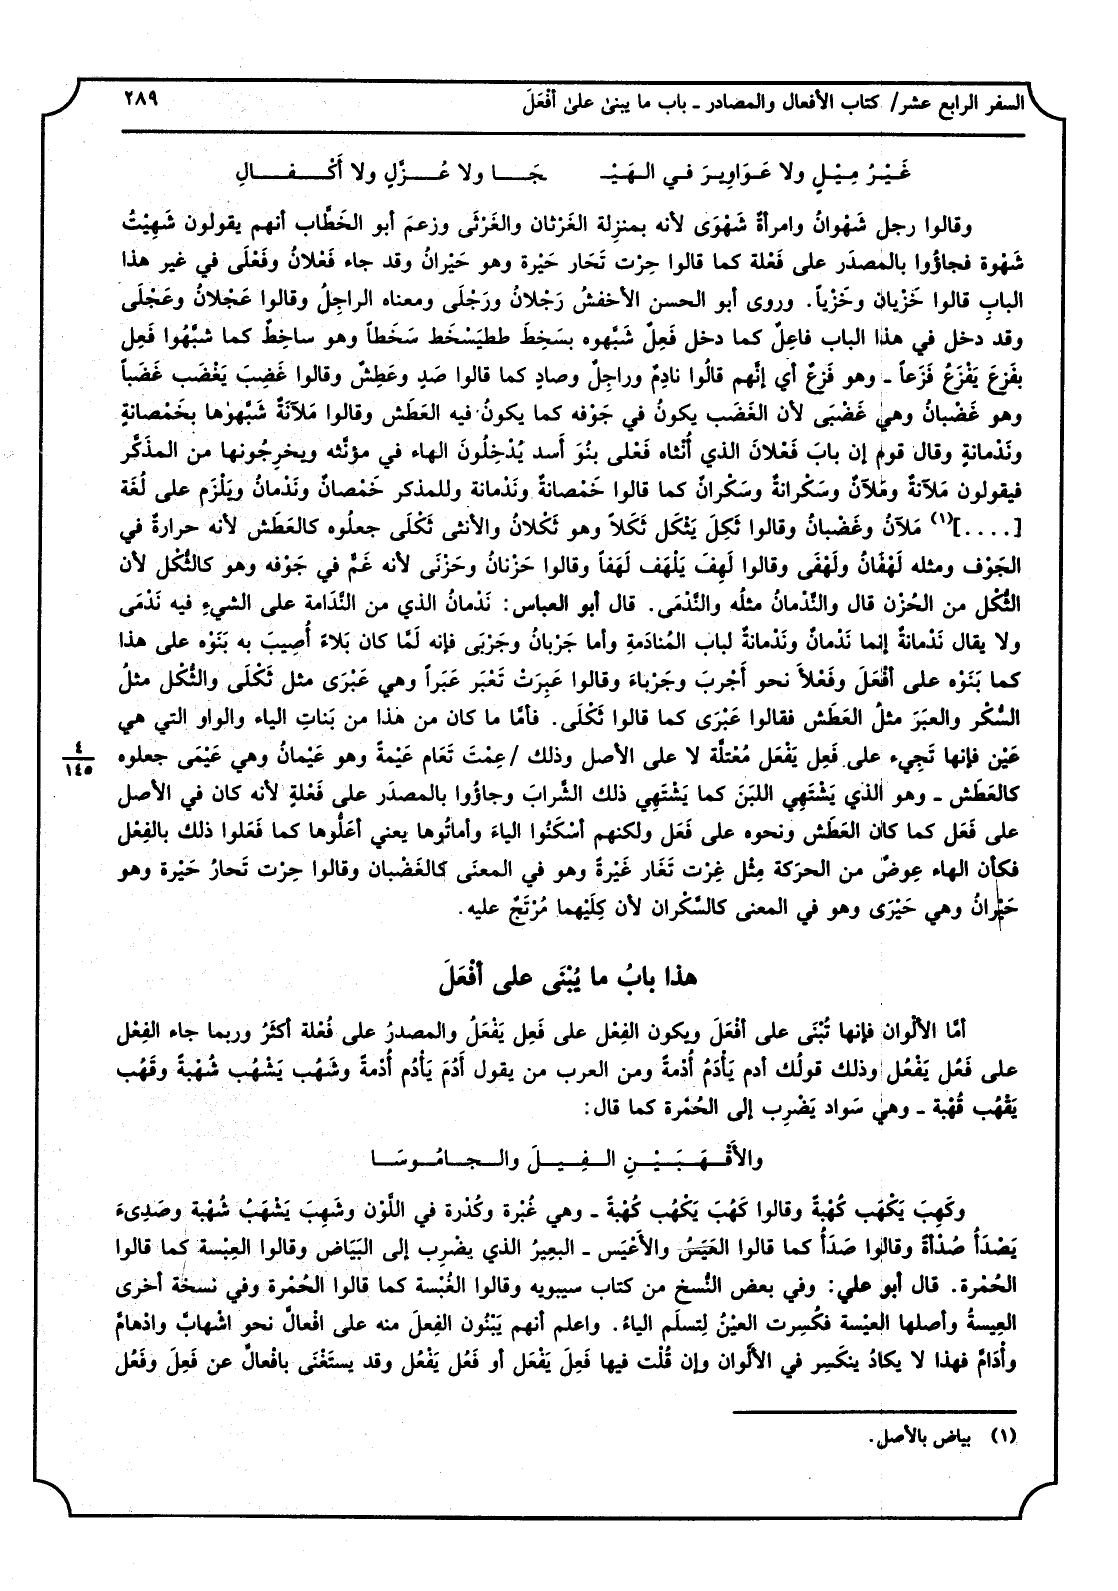 السفر الرابع عشر/ كتاب الأفعال والمصادر ـ باب ما يبنىٰ علىٰ أفْعَلَ
٢٨٩
غَيْرُ مِيْلٍ ولا عَوَاوِيرَ في الهَيْـ ـجَا ولا عُزَّلٍ ولا أَكْفَالِ
وقالوا رجل شَهْوانُ وامرأةٌ شَهْوَى لأنه بمنزلة الغَرْثان والغَرْثَى وزعم أبو الخَطَّاب أنهم يقولون شَهِيْتُ
شَهْوة فجاؤوا بالمصدَر على فَعْلة كما قالوا حِرْت تَحَار حَيْرة وهو حَيْرانُ وقد جاء فَعْلانُ وفَعْلَى في غير هذا
البابِ قالوا خَزْيان وخَزْياً. وروى أبو الحسن الأخفشُ رَجْلانُ ورَجْلَى ومعناه الراجِلُ وقالوا عَجْلانُ وعَجْلَى
وقد دخل في هذا الباب فاعِلٌ كما دخل فَعِلٌ شَبَّهوه بسَخِطَ ططيَسْخَط سَخَطاً وهو ساخِطٌ كما شبَّهُوا فَعِل
بفَزِعَ يَفْزَعُ فَزَعاً ـ وهو فَزِعٌ أي إنَّهم قالُوا نادِمٌ وراجِلٌ وصادٍ كما قالوا صَدٍ وعَطِشٌ وقالوا غَضِبَ يَغْضَب غَضَباً
وهو غَضْبانُ وهي غَضْبَى لأن الغَضَب يكونُ في جَوْفه كما يكونُ فيه العَطَش وقالوا مَلآنَةٌ شَبَّهوْها بخَمْصانةٍ
ونَدْمانةٍ وقال قوم إن بابَ فَعْلانَ الذي أُنْثاه فَعْلى بنُوَ أسد يُدْخِلُونَ الهاء في مؤنَّثه ويخرِجُونها من المذكَّر
فيقولون مَلآنةٌ ومَلآنٌ وسَكْرانةٌ وسَكْرانٌ كما قالوا خَمْصانةٌ ونَدْمانة وللمذكر خَمْصانٌ ونَدْمانُ ويَلْزَم على لُغَة
[....](١) مَلآنُ وغَضْبانُ وقالوا ثَكِلَ يَثْكَل ثَكَلاً وهو ثَكْلانُ والأنثى ثَكْلَى جعلُوه كالعَطَش لأنه حرارةٌ في
الجَوْف ومثله لَهْفَانُ ولَهْفَى وقالوا لَهِفَ يَلْهَف لَهَفاً وقالوا حَزْنانُ وحَزْنَى لأنه غَمٌّ في جَوْفه وهو كالثُّكْل لأن
الثُّكْل من الحُزْن قال والنَّدْمانُ مثلُه والنَّدْمَى. قال أبو العباس: نَدْمانُ الذي من النَّدَامة على الشيءِ فيه نَدْمَى
ولا يقال نَدْمانةٌ إنما نَدْمانٌ ونَدْمانةٌ لباب المُنادَمةِ وأما جَرْبانُ وجَرْبَى فإنه لَمَّا كان بَلاءً أُصِيبَ به بَنَوْه على هذا
كما بَنَوْه على أفْعَلَ وفَعْلاَ نحو أَجْربَ وجَرْباءَ وقالوا عَبِرَتْ تَعْبَر عَبَراً وهي عَبْرَى مثل ثَكْلَى والثُّكل مثلُ
السُّكْر والعبَرَ مثلُ العَطَش فقالوا عَبْرَى كما قالوا ثَكْلَى. فأمَّا ما كان من هذا من بَناتِ الياء والواو التي هي
عَيْن فإنها تَجِيء على فَعِل يَفْعَل مُعْتلَّة لا على الأصل وذلك /عِمْتَ تَعَام عَيْمةً وهو عَيْمانُ وهي عَيْمَى جعلوه
٤
١٤٥
كالعَطَش ـ وهو الذي يَشْتَهِي اللبَنَ كما يَشْتَهِي ذلك الشَّرابَ وجاؤوا بالمصدَر على فَعْلةٍ لأنه كان في الأصل
على فَعَل كما كان العَطَش ونحوه على فَعَل ولكنهم أسْكَنُوا الياءَ وأماتُوها يعني أعَلُّوها كما فَعَلوا ذلك بالفِعْل
فكأن الهاء عِوضٌ من الحرَكة مِثْل غِرْت تَغَار غَيْرةً وهو في المعنَى كالغَضْبان وقالوا حِرْت تَحارُ حَيْرة وهو
حَيْرانُ وهي حَيْرَى وهو في المعنى كالسَّكْران لأن كِلَيْهما مُرْتَجٌ عليه.
هذا بابُ ما يُبْنَى على أفْعَلَ
أمَّا الألْوان فإنها تُبْنَى على أفْعَلَ ويكون الفِعْل على فَعِل يَفْعَلُ والمصدرُ على فُعْلة أكثَرُ وربما جاء الفِعْل
على فَعُل يَفْعُل وذلك قولُك أدم يَأْدَمُ أُدْمةً ومن العرب من يقول أَدُمَ يَأْدُم أُدْمةً وشَهُب يَشْهُب شُهْبةً وقَهُب
يَقْهُب قُهْبة ـ وهي سَواد يَضْرِب إلى الحُمْرة كما قال:
والأَقْهَبَيْنِ الفِيلَ والجامُوسَا
وكَهِبَ يَكْهَب كُهْبةً وقالوا كَهُبَ يَكْهُب كُهْبةً ـ وهي غُبْرة وكُدْرة في اللَّوْن وشَهِبَ يَشْهَبُ شُهْبة وصَدِىءَ
يَصْدَأُ صُدْأةً وقالوا صَدَأً كما قالوا العَيَسُ والأَعْيَس ـ البعيرُ الذي يضْرِب إلى البَيَاض وقالوا العِبْسة كما قالوا
الحُمْرة. قال أبو علي: وفي بعض النُّسخ من كتاب سيبويه وقالوا الغُبْسة كما قالوا الحُمْرة وفي نسخة أخرى
العِيسةُ وأصلها العيْسة فكُسِرت العيْنُ لِتسلَم الياءُ. واعلم أنهم يَبْنُون الفِعلَ منه على افْعالَّ نحو اشْهابَّ وادْهامَّ
وأْدَامَّ فهذا لا يكادُ ينكَسِر في الأَلْوان وإن قُلْت فيها فَعِلَ يَفْعَل أو فَعُل يَفْعُل وقد يستَغْنَى بافْعالَّ عن فَعِلَ وفَعُل
(١) بياض بالأصل.